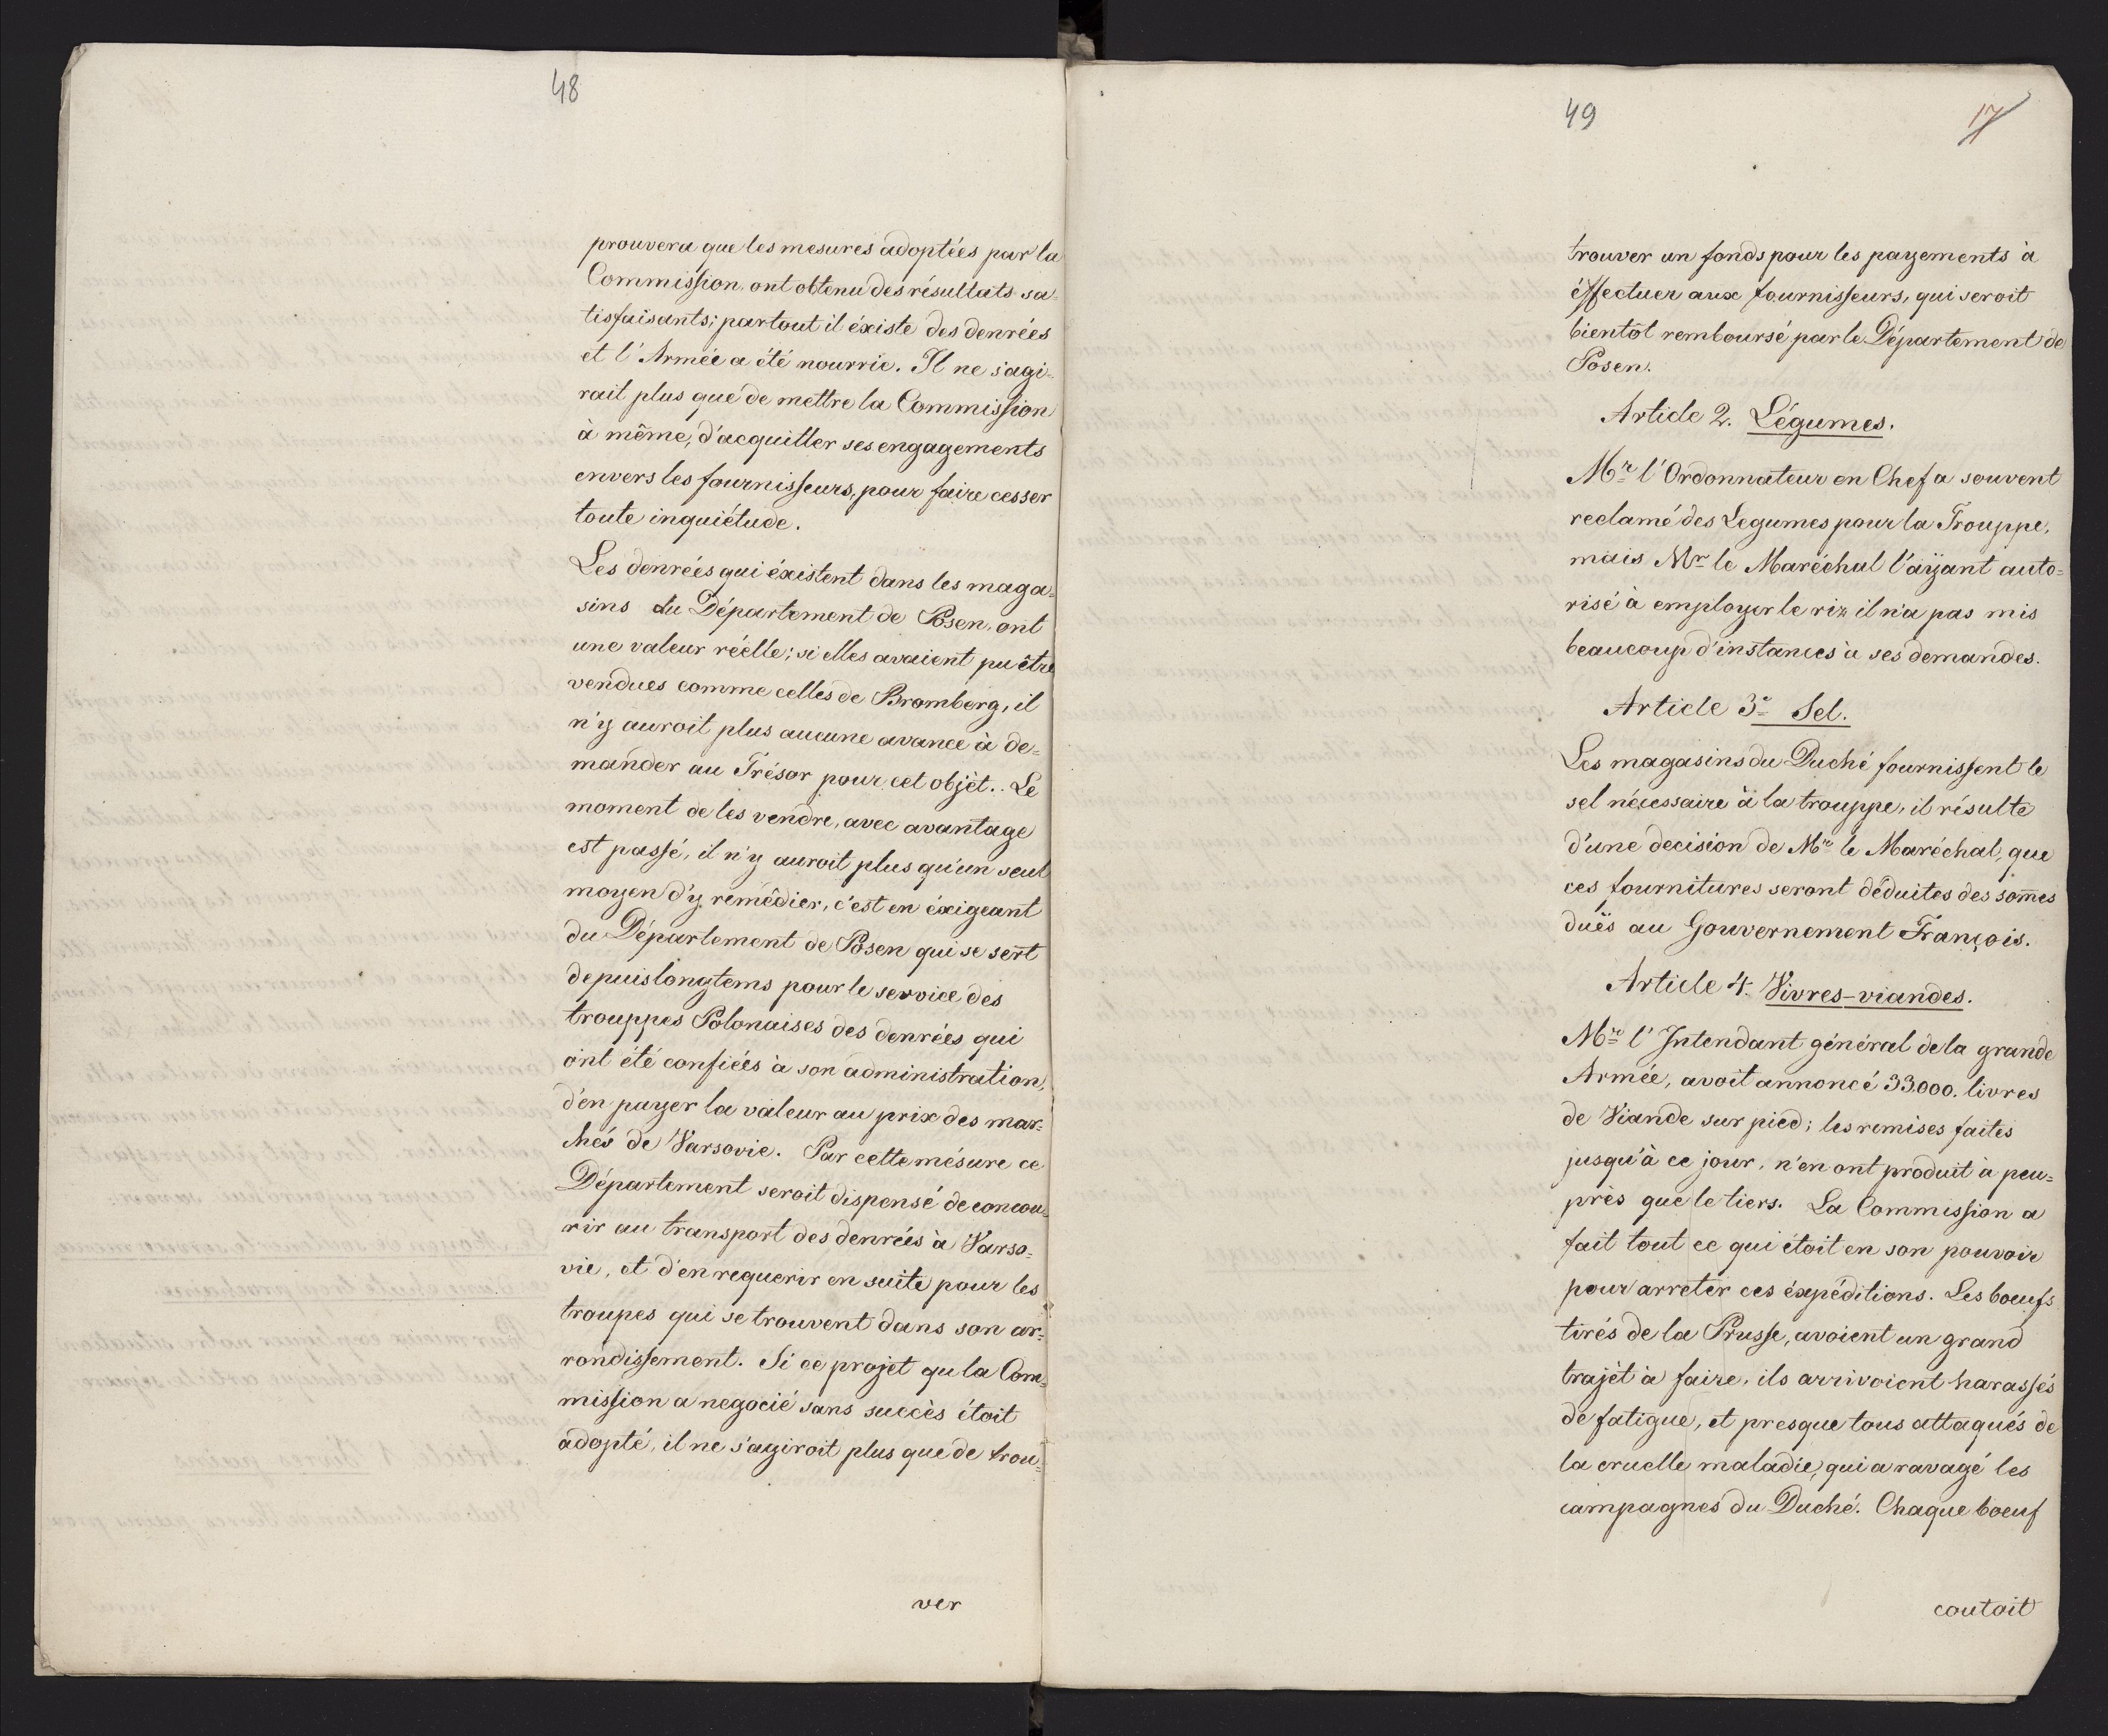 48
prouvera que les mesures adoptées par la
Commission ont obtenu des résultats sa=
tisfaisants; partout il éxiste des denrées
et l'Armée a été nourrie. Il ne s'agi=
rait plus que de mettre la Commission
à même, d'acquitter ses engagements
envers les fournisseurs, pour faire cesser
toute inquiétude.
Les denrées qui éxistent dans les maga=
sins du Département de Posen, ont
une valeur réelle; si elles avaient pu être
vendues comme celles de Bromberg, il
n'y auroit plus aucune avance à de=
mander au Trésor pour cet objèt.. Le
moment de les vendre, avec avantage
est passé, il n'y auroit plus qu'un seul
moyen d'y remédier, c'est en éxigeant
du Département de Posen qui se sert
depuis longtems pour le service des
trouppes Polonaises des denrées qui
ont été confiées à son administration,
d'en payer la valeur au prix des mar=
chés de Varsovie. Par cette mésure ce
Département seroit dispensé de concou=
rir au transport des denrées à Varso=
vie, et d'en requerir en suite pour les
troupes qui se trouvent dans son ar=
rondissement. Si ce projet qu la Com=
mission a negocié sans succès étoit
adopté, il ne s'agiroit plus que de trou=
ver
49
17
trouver un fonds pour les payements à
éffectuer aux fournisseurs, qui seroit
bientôt remboursé par le Département de
Posen.
Article 2. Légumes.
Mr l'Ordonnateur en Chef a souvent
reclamé des Legumes pour la Trouppe,
mais Mr le Maréchal l'aÿant auto=
risé à employer le riz il n'a pas mis
beaucoup d'instances à ses demandes.
Article 3e Sel.
Les magasins du Duché fournissent le
sel nécessaire à la trouppe, il résulte
d'une decision de Mr le Maréchal, que
ces fournitures seront déduites des som̄es
duës au Gouvernement François.
Article 4. Vivres-viandes.
Mr l'Intendant général de la grande
Armée, avoit annoncé 33.000. livres
de Viande sur pied; les remises faites
jusqu'à ce jour, n'en ont produit à peu=
près que le tiers. La Commission a
fait tout ce qui étoit en son pouvoir
pour arreter ces éxpéditions. Les boeufs
tirés de la Prusse, avoient un grand
trajèt à faire, ils arrivoient harassés
de fatigue, et presque tous attaqués de
la cruelle maladie, qui a ravagé les
campagnes du Duché. Chaque boeuf
coutoit